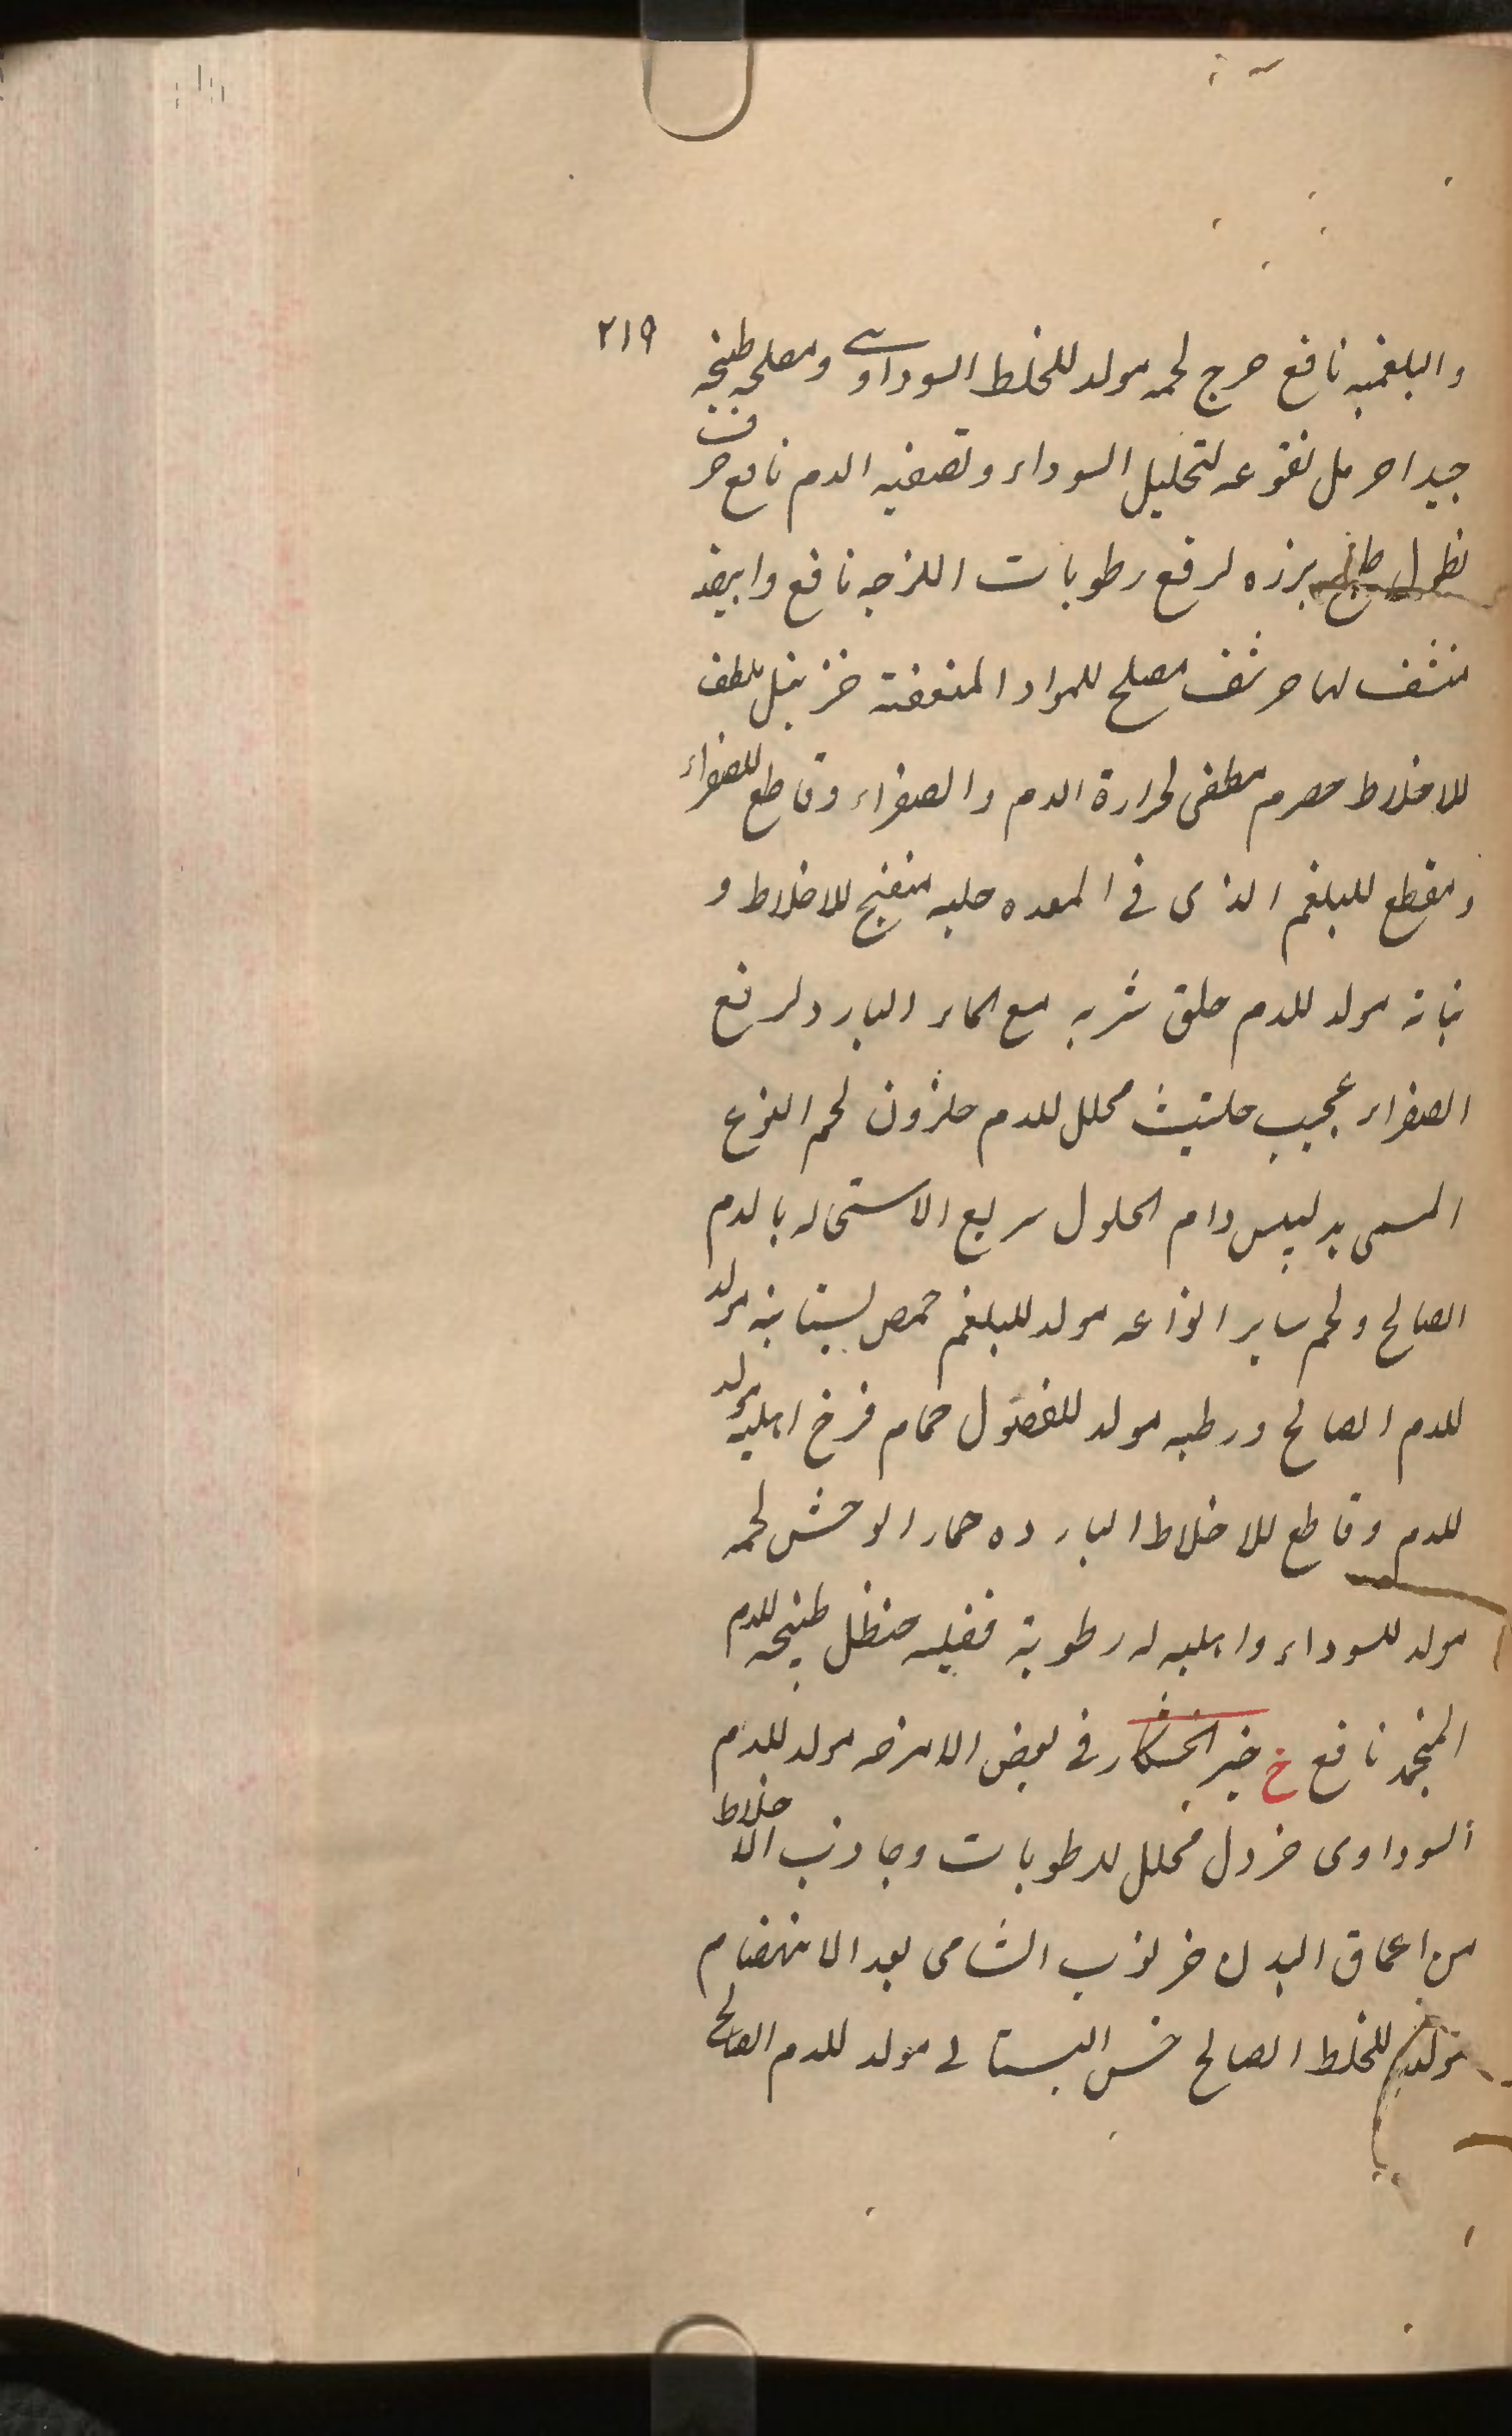 ٢١٩
والبلغميه نافع حرج لحمه مولد للخلط السوداوى ومصلحه طبخه
جيدا حرمل نقوعه لتحليل السوداء وتصفيه الدم نافع حرف
نطول طبيخ برزه لرفع رطوبات اللزجه نافع وابيضه
منشف لها حرشف مصلح للمواد المتعفنة خزنبل ملطف
للاخلاط حصرم مطفى لحرارة الدم والصفراء وقاطع للصفراء
ومقطع للبلغم الذى فى المعده حلبه منضج للاخلاط و
نباته مولد للدم حلق شربه مع الماء البارد لرفع
الصفراء عجيب حلتيت محلل للدم حلزون لحم النوع
المسمى بدليس وام الحلول سريع الاستحاله بالدم
الصالح ولحم ساير انواعه مولد للبلغم حمص بستانيه مولد
للدم الصالح ورطبه مولد للفضول حمام فرخ اهليه مولد
للدم وقاطع للاخلاط البارده حمار الوحش لحمه
مولد للسوداء واهليه له رطوبة فضليه حنظل طبيخه للدم
المنجمد نافع خ خبز الخشكار فى بعض الامزجه مولد للدم
السوداوى خردل محلل للرطوبات وجاذب الاخلاط
من اعماق البدن خرنوب الشامى بعد الانهضام
للخلط الصالح خس البستانى مولد للدم الصالح